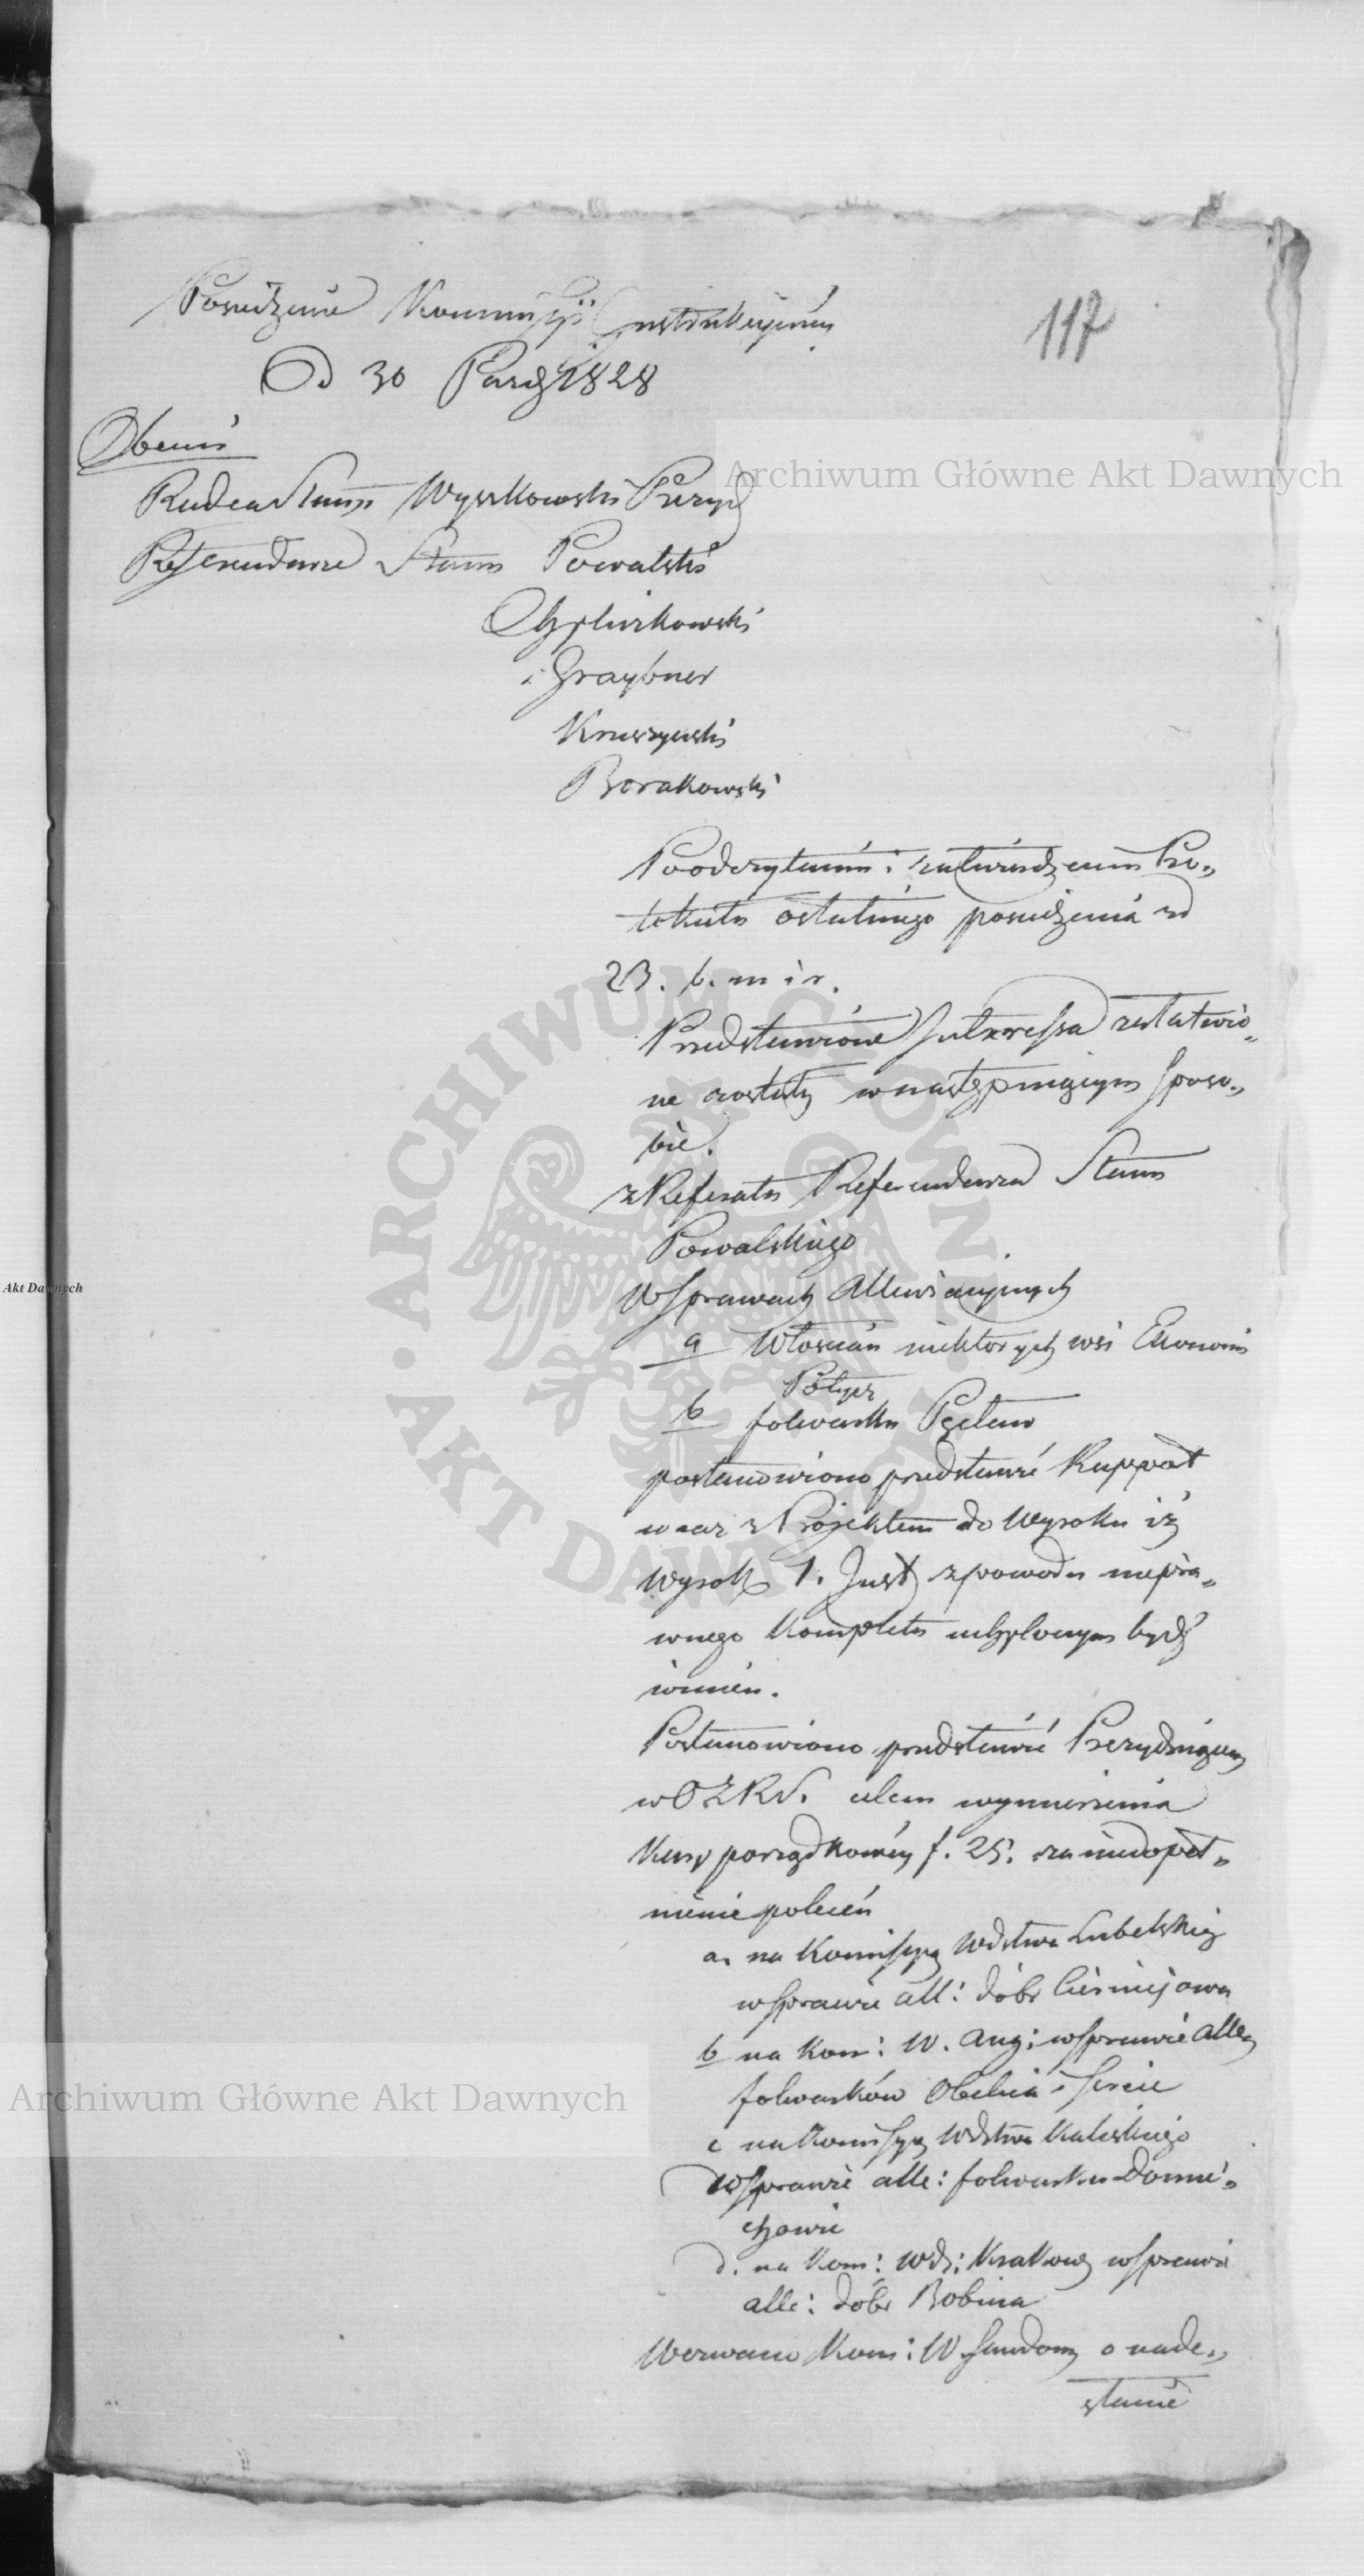 117
Posiedzenie Kommissyi Instrukcyjnéy
D 30 Paźdz 1828
Obecni
Radca Stanu Wyszkowski Prezyd
Referendarze Stanu Powalski
i Graybner
Kruszyński
Borakowski
Po odczytaniu i zatwierdzeniu Pro„
tokułu ostatniego posiedzenia z d
23. b. m i r.
Przedstawione Interessa załatwio„
ne zostały w następuiącym sposo„
bie.
z Referatu Referendarza Stanu
Powalskiego
W sprawach Allewiacyjnych
a Włościan niektorych wsi Ekonomii
b folwarku
postanowiono przedstawić Rapport
wraz z Projektem do Wyroku iż
Wyrok 1. Inst z powodu niepra„
wnego Kompletu uchylonym bydź
winien.
Postanowiono przedstawić Prezyduiącemu
w celem wymierzenia
Kary porządkowéy f. 25. za niedopeł„
nienie poleceń
a. na Kommissyą Wdztwa Lubelskiego
w sprawie all: dóbr
b na Kom: W. Aug: w sprawie alle
folwarków Obelica i
c na Komissyą Wdztwa Kaliskiego
w sprawie alle: folwarku Domie„
chowie
d. na Kom: Wdz: Krakow w sprawie
alle: dóbr Bobina
Wezwano Kom: W Sandom o nade„
słanie
Archiwum Główne Akt Dawnych
Archiwum Główne Akt Dawnych
ARCHIWUM GŁÓWNE AKT DAWNYCH
Akt Dawnych